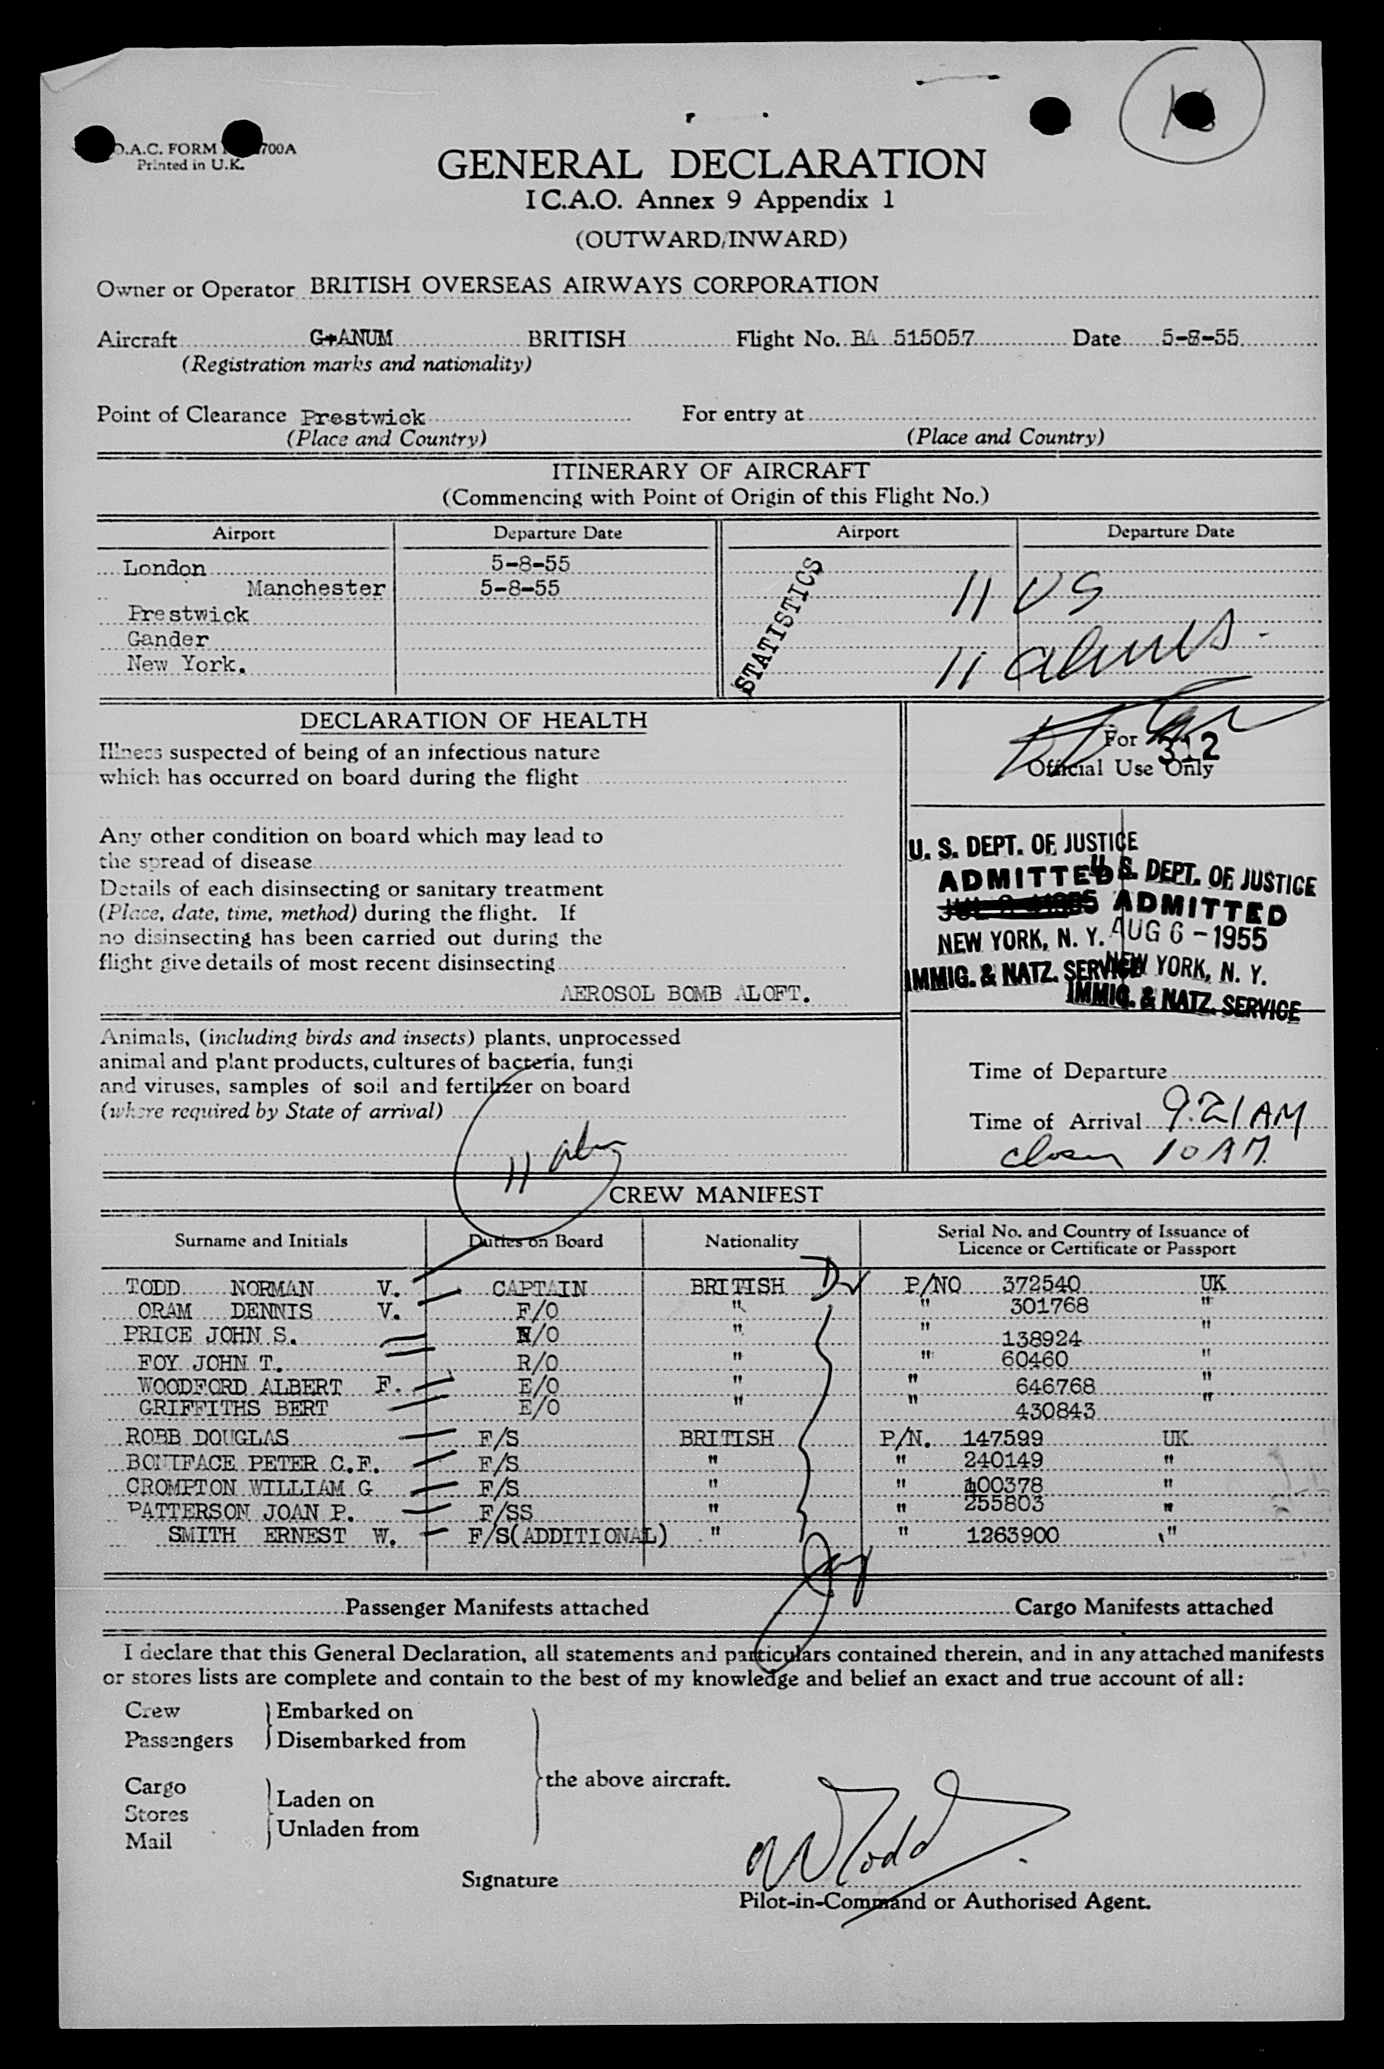 O.A.C. FORM 700A
Printed in U.K.
GENERAL DECLARATION
I C.A.O. Annex 9 Appendix 1
(OUTWARD/INWARD)
Owner or Operator BRITISH OVERSEAS AIRWAYS CORPORATION
Aircraft G+ANUM BRITISH Flight No. BA 515057 Date 5-8-55
(Registration marks and nationality)
Point of Clearance Prestwick For entry at
(Place and Country) (Place and Country)
ITINERARY OF AIRCRAFT
(Commencing with Point of Origin of this Flight No.)
Airport Departure Date Airport Departure Date
London 5-8-55
Manchester 5-8-55
Prestwick
Gander
New York.
STATISTICS
11 US
11 aliens
DECLARATION OF HEALTH
Illness suspected of being of an infectious nature
which has occurred on board during the flight
Any other condition on board which may lead to
the spread of disease
Details of each disinsecting or sanitary treatment
(Place, date, time, method) during the flight. If
no disinsecting has been carried out during the
flight give details of most recent disinsecting
AEROSOL BOMB ALOFT.
For
312
Official Use Only
U. S. DEPT. OF JUSTICE
ADMITTED
NEW YORK, N. Y.
IMMIG. & NATZ. SERVICE
U. S. DEPT. OF JUSTICE
ADMITTED
AUG 6 - 1955
NEW YORK, N. Y.
IMMIG. & NATZ. SERVICE
Animals, (including birds and insects) plants, unprocessed
animal and plant products, cultures of bacteria, fungi
and viruses, samples of soil and fertilizer on board
(where required by State of arrival)
11
Time of Departure
Time of Arrival 9.21 AM
10 AM.
CREW MANIFEST
Surname and Initials Duties on Board Nationality Serial No. and Country of Issuance of
Licence or Certificate or Passport
TODD NORMAN V. CAPTAIN BRITISH P/NO 372540 UK
ORAM DENNIS V. F/O " " 301768 "
PRICE JOHN S. N/O " " 138924 "
FOY JOHN T. R/O " " 60460 "
WOODFORD ALBERT F. E/O " " 646768 "
GRIFFITHS BERT E/O " " 430843 "
ROBB DOUGLAS F/S BRITISH P/N. 147599 UK
BONIFACE PETER C.F. F/S " " 240149 "
CROMPTON WILLIAM G F/S " " 100378 "
PATTERSON JOAN P. F/SS " " 255803 "
SMITH ERNEST W. F/S(ADDITIONAL) " " 1263900 "
Passenger Manifests attached Cargo Manifests attached
I declare that this General Declaration, all statements and particulars contained therein, and in any attached manifests
or stores lists are complete and contain to the best of my knowledge and belief an exact and true account of all:
Crew Embarked on
Passengers Disembarked from
the above aircraft.
Cargo Laden on
Stores
Mail Unladen from
Signature N V Todd
Pilot-in-Command or Authorised Agent.